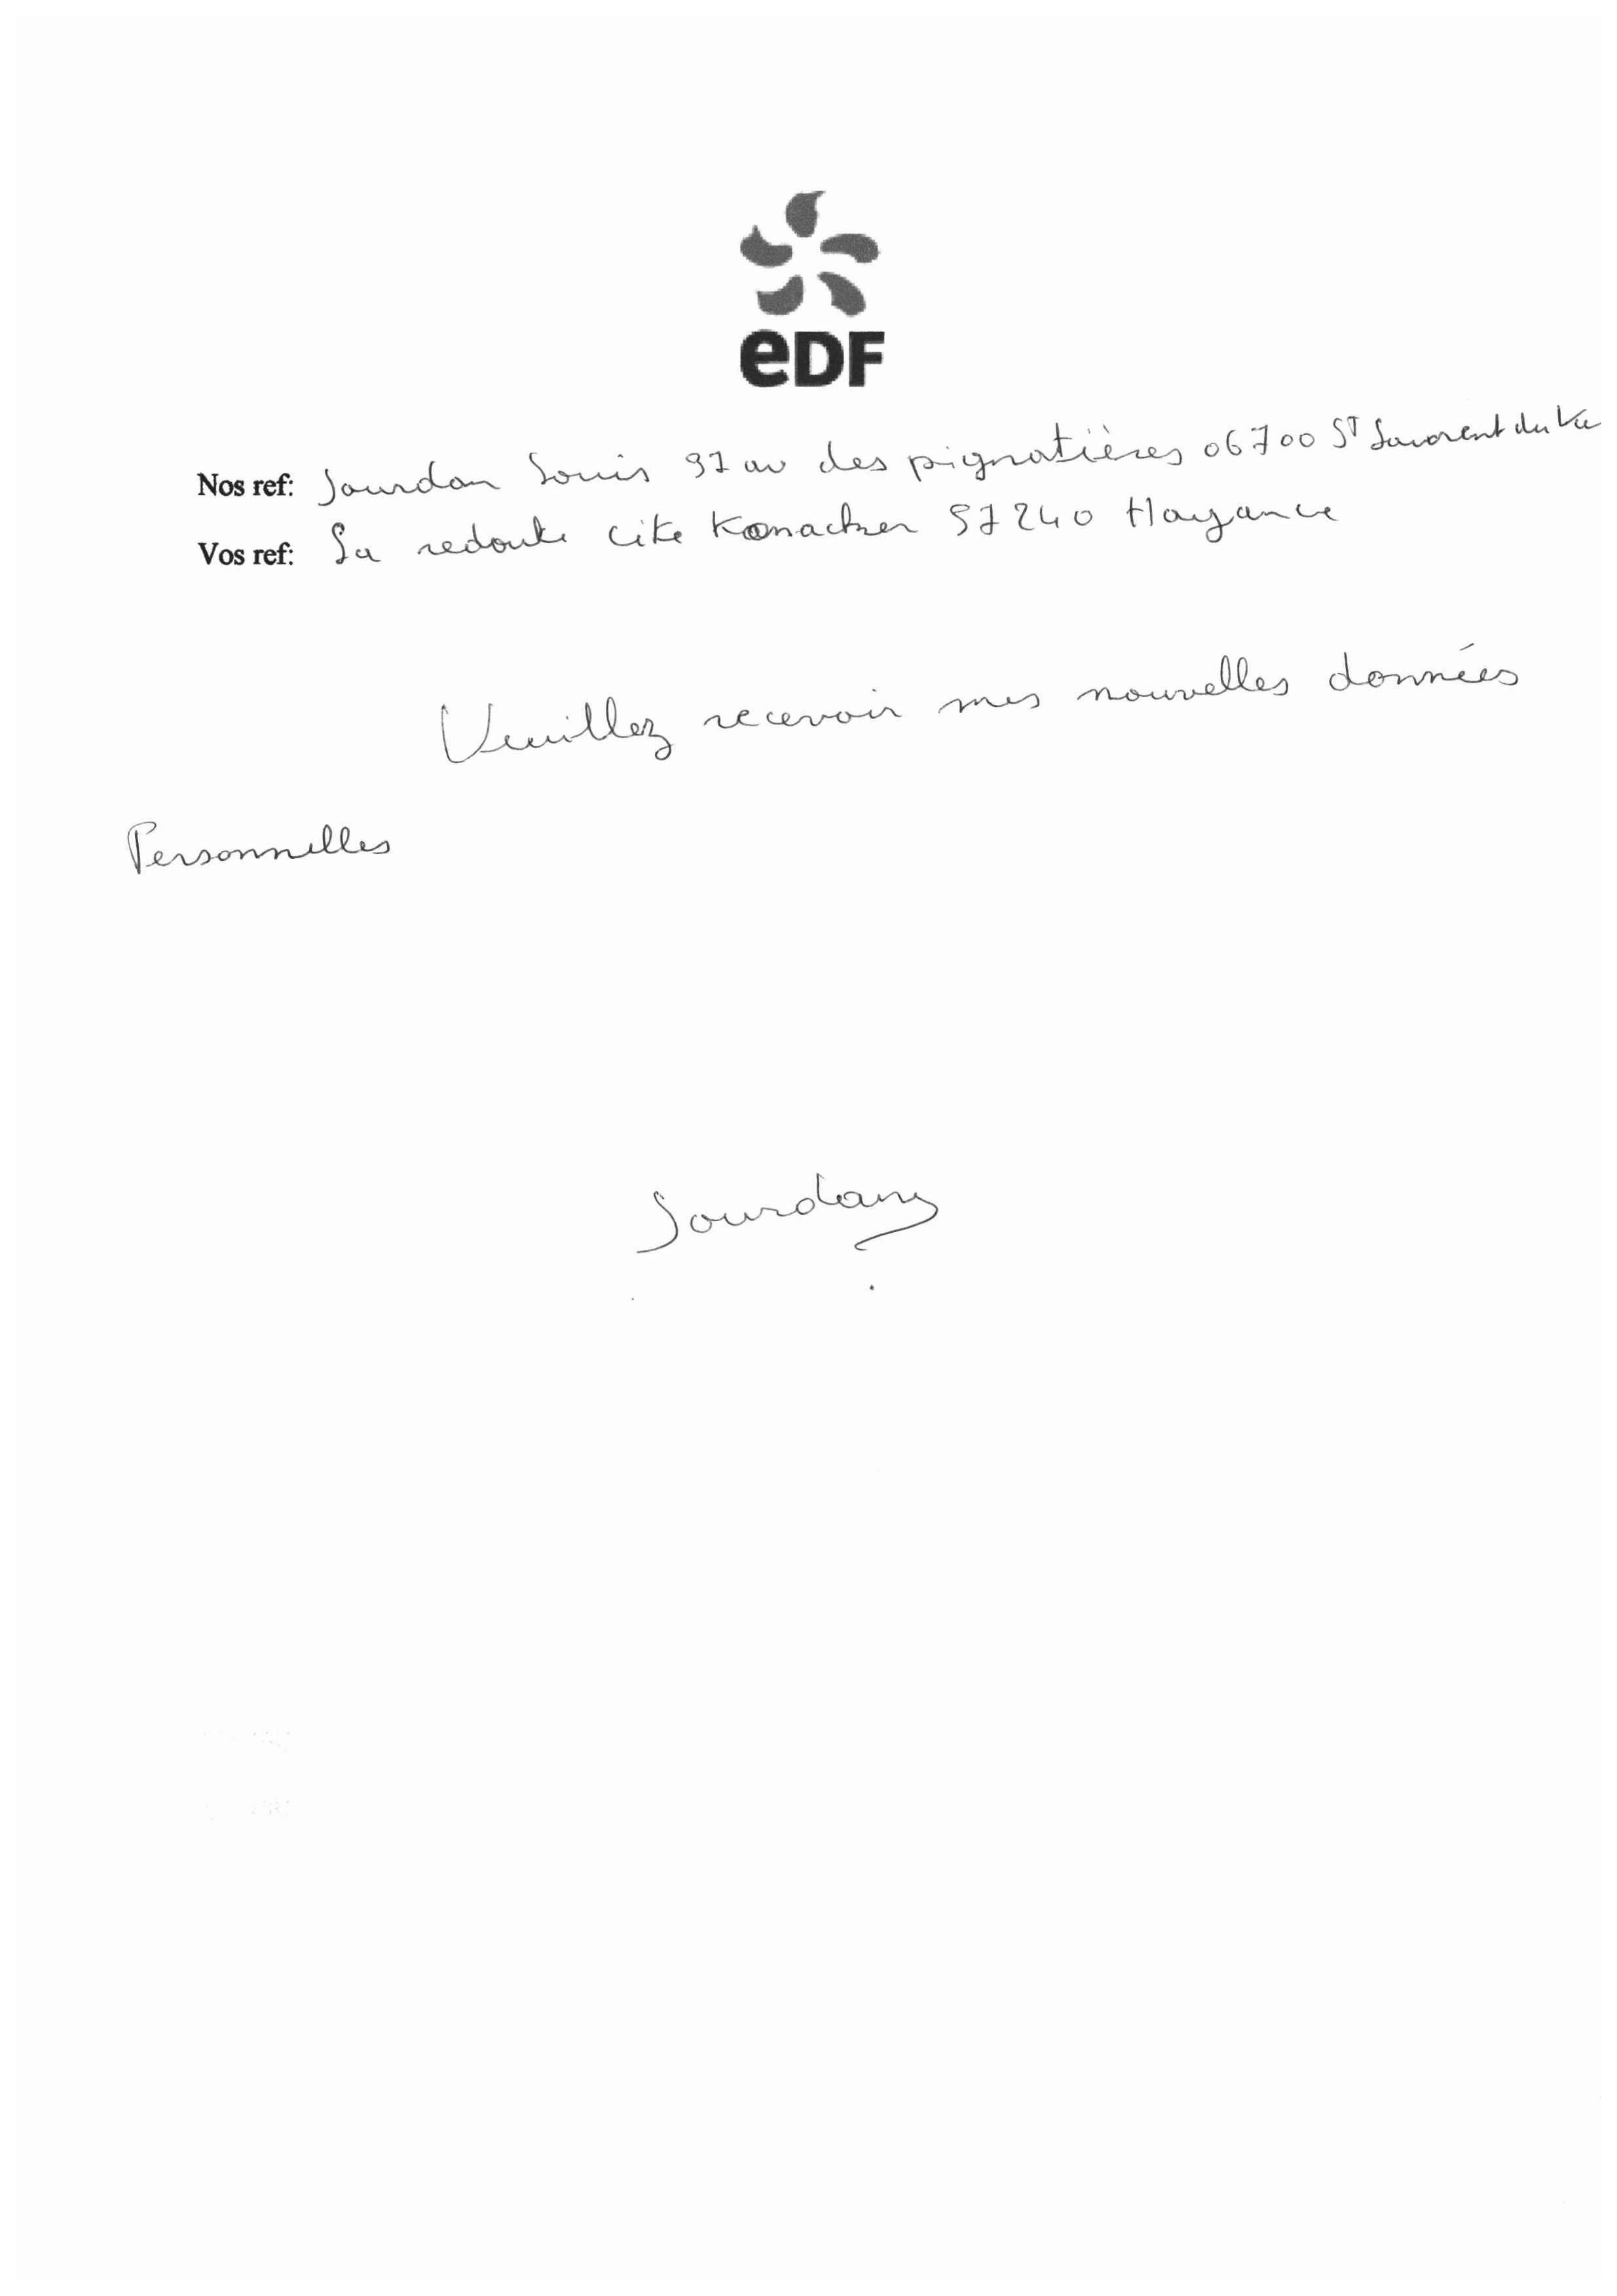 eDF
Nos ref: Jourdan Louis 37 av des pignatières 06700 ST Laurent du Va
Vos ref: La redoute cite Konacker 57240 Hayance
Veuillez recevoir mes nouvelles données
Personnelles
Jourdan